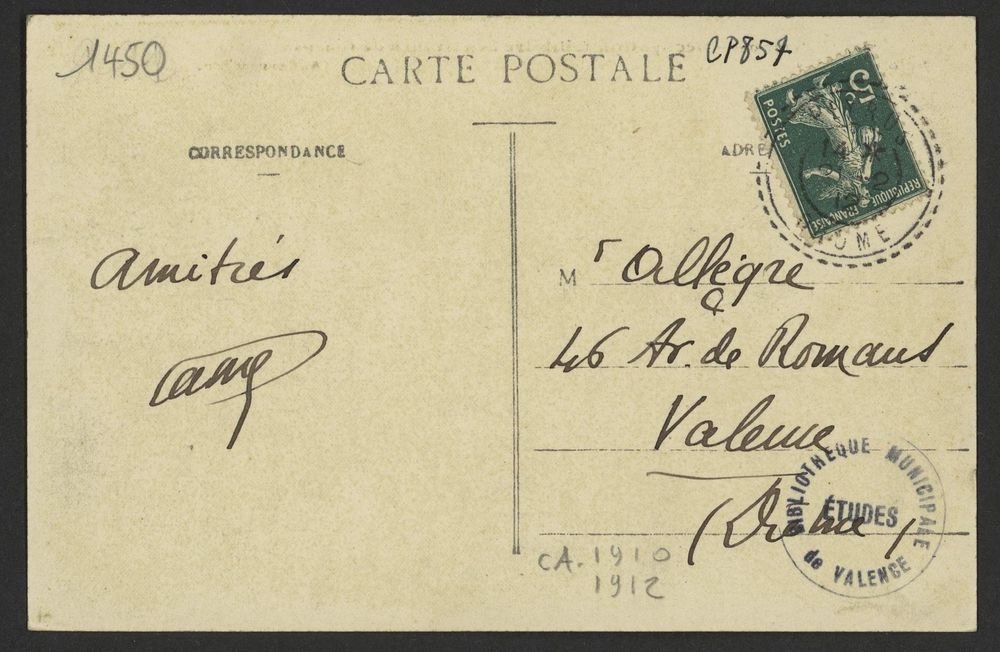 1450
CP857
CARTE POSTALE
CORRESPONDANCE
ADRE
5c
POSTES
REPUBLIQUE FRANÇAISE
Amitiés
Mr Allègre
46 Av. de Romans
Valence
(Drôme)
BIBLIOTHEQUE MUNICIPALE
ÉTUDES
de VALENCE
CA. 1910
1912